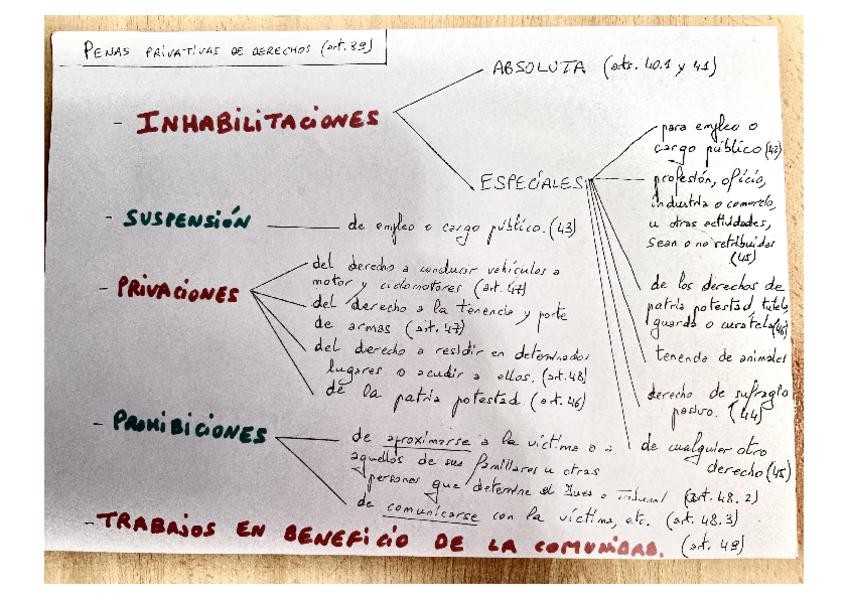 PENAS PRIVATIVAS DE DERECHOS (art. 39)
- INHABILITACIONES
ABSOLUTA (arts. 40.1 y 41)
ESPECIALES
para empleo o
cargo público (42)
profesión, oficio,
industria o comercio,
u otras actividades,
sean o no retribuidas
(45)
de los derechos de
patria potestad, tutela,
guarda o curatela (46)
tenencia de animales
derecho de sufragio
pasivo. (44)
de cualquier otro
derecho (45)
- SUSPENSIÓN
de empleo o cargo público. (43)
- PRIVACIONES
del derecho a conducir vehículos a
motor y ciclomotores (art. 47)
del derecho a la tenencia y porte
de armas (art. 47)
del derecho a residir en determinados
lugares o acudir a ellos. (art. 48)
de la patria potestad. (art. 46)
- PROHIBICIONES
de aproximarse a la víctima o a
aquellos de sus familiares u otras
personas que determine el Juez o Tribunal (art. 48.2)
de comunicarse con la víctima, etc. (art. 48.3)
- TRABAJOS EN BENEFICIO DE LA COMUNIDAD. (art. 49)